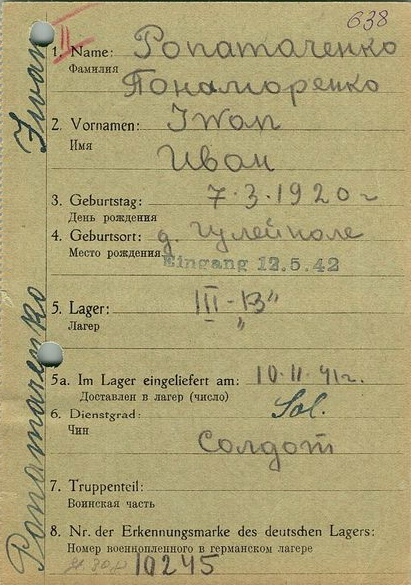 638
II
1. Name: Ponamarenko
Фамилия
Пономоренко
2. Vornamen: Iwan
Имя
Иван
3. Geburtstag: 7.3.1920 г
День рождения
4. Geburtsort: д. гулейполе
Место рождения
Eingang 12.5.42
5. Lager: III-B"
Лагер "
5a. Im Lager eingeliefert am: 10.11.41г.
Доставлен в лагер (число)
6. Dienstgrad: Sol.
Чин
Солдот
7. Truppenteil:
Воинская часть
8. Nr. der Erkennungsmarke des deutschen Lagers:
Номер военнопленного в германском лагере
10245
Ponamarenko Iwan